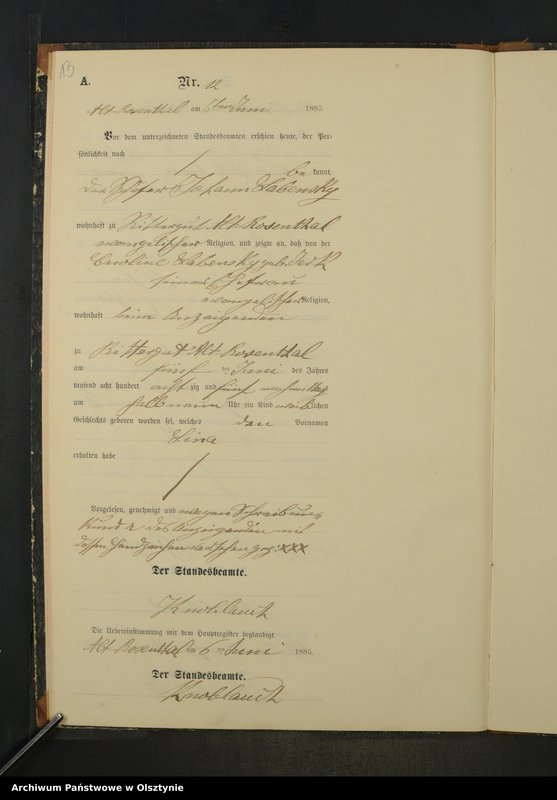 13
A.
Nr. 12
Alt Rosenthal am 6ten Juni 1885.
Vor dem unterzeichneten Standesbeamten erschien heute, der Per-
sönlichkeit nach
be kannt,
der Johann Labensky
wohnhaft zu Rittergut Alt Rosenthal
evangelischer Religion, und zeigte an, daß von der
Caroline Labensky geb.
seiner Ehefrau
evangelischer Religion,
wohnhaft beim Anzeigenden
zu Rittergut Alt Rosenthal
am fünf ten Juni des Jahres
tausend acht hundert acht zig und fünf nachmittags
um halb neun Uhr ein Kind weib lichen
Geschlechts geboren worden sei, welches den Vornamen
Lina
erhalten habe
Vorgelesen, genehmigt und wegen Schreibun-
kunde des Anzeigenden mit
dessen Handzeichen versehen gez: XXX
Der Standesbeamte.
Knoblauch
Die Uebereinstimmung mit dem Hauptregister beglaubigt
Alt Rosenthal am 6 ten Juni 1885.
Der Standesbeamte.
Knoblauch
Archiwum Państwowe w Olsztynie